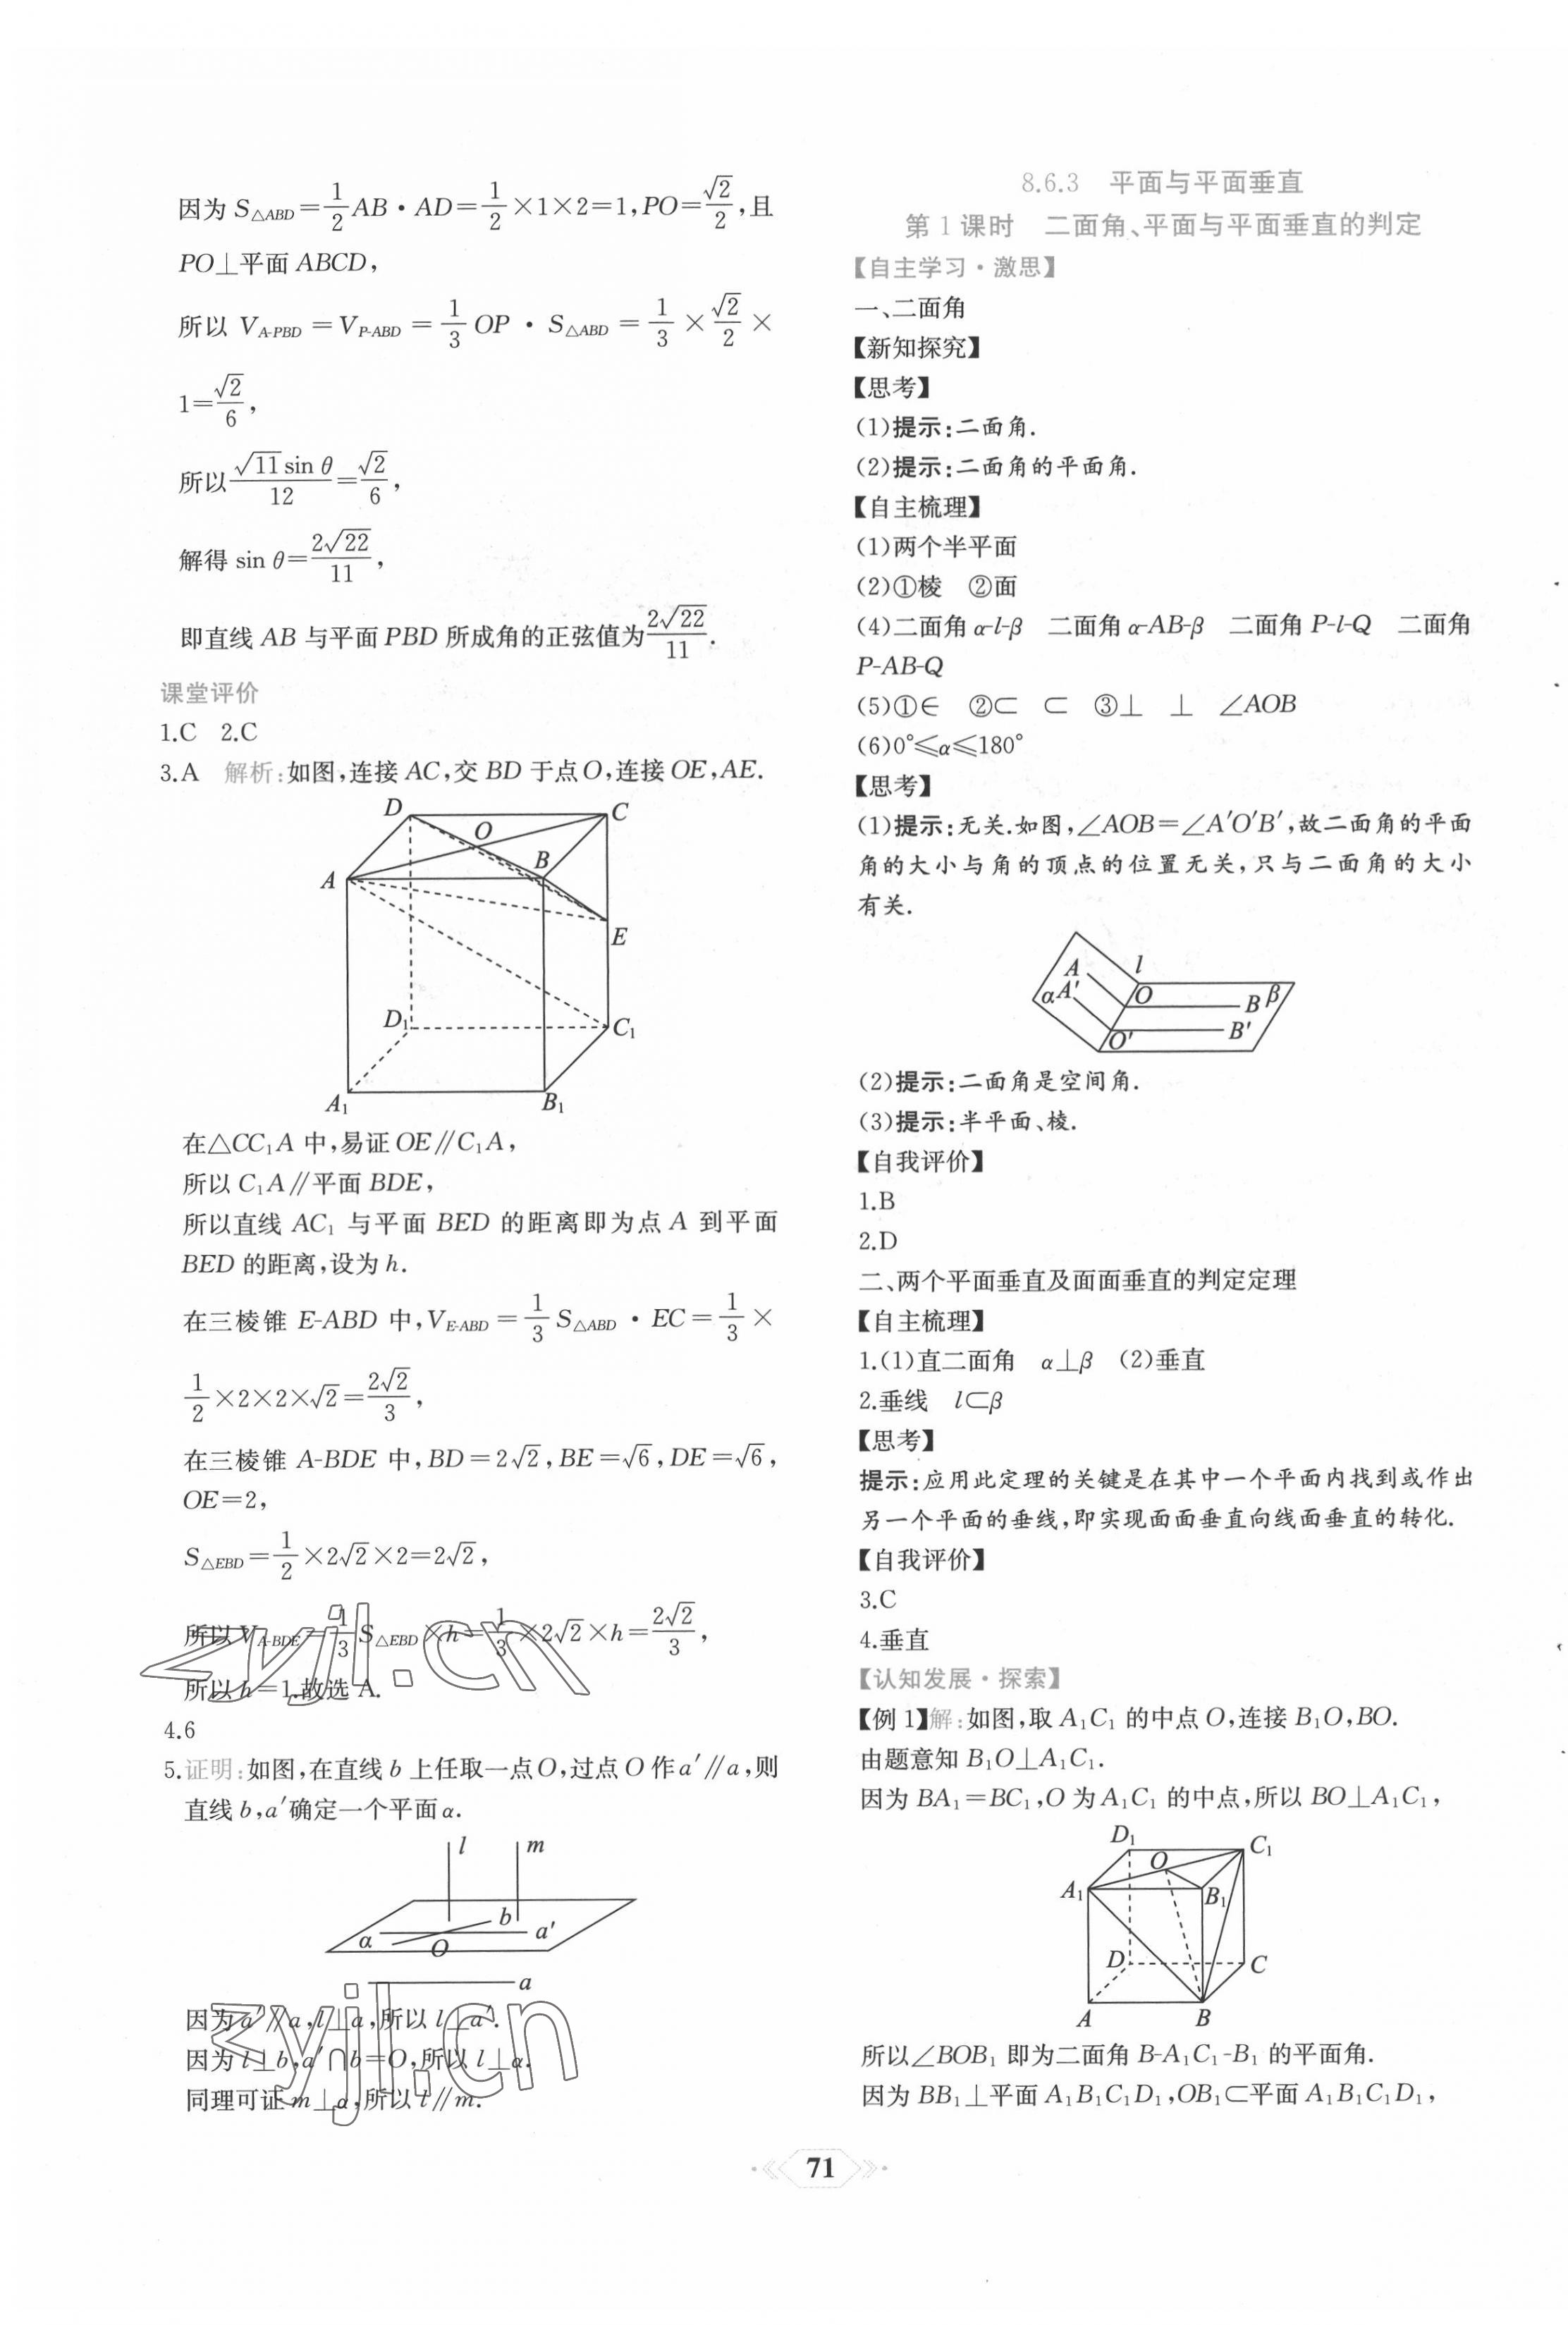 因为 S△ABD=1/2 AB·AD=1/2×1×2=1,PO=√2/2,且
PO⊥平面 ABCD,
所以 V_{A-PBD}=V_{P-ABD}=1/3 OP·S△ABD=1/3×√2/2×
1=√2/6,
所以 √11 sin θ/12=√2/6,
解得 sin θ=2√22/11,
即直线 AB 与平面 PBD 所成角的正弦值为 2√22/11.
课堂评价
1.C 2.C
3.A 解析:如图,连接 AC,交 BD 于点 O,连接 OE,AE.
D
C
O
B
A
E
D₁
C₁
A₁
B₁
在△CC₁A 中,易证 OE∥C₁A,
所以 C₁A∥平面 BDE,
所以直线 AC₁ 与平面 BED 的距离即为点 A 到平面
BED 的距离,设为 h.
在三棱锥 E-ABD 中,V_{E-ABD}=1/3 S△ABD·EC=1/3×
1/2×2×2×√2=2√2/3,
在三棱锥 A-BDE 中,BD=2√2,BE=√6,DE=√6,
OE=2,
S△EBD=1/2×2√2×2=2√2,
所以 V_{A-BDE}=1/3 S△EBD×h=1/3×2√2×h=2√2/3,
所以 h=1.故选 A.
4.6
5.证明:如图,在直线 b 上任取一点 O,过点 O 作 a′∥a,则
直线 b,a′确定一个平面 α.
l
m
b
a′
α
O
a
因为 a′∥a,l⊥a,所以 l⊥a′.
因为 l⊥b,a′∩b=O,所以 l⊥α.
同理可证 m⊥α,所以 l∥m.
zyjl.cn
zyjl.cn
8.6.3 平面与平面垂直
第 1 课时 二面角、平面与平面垂直的判定
【自主学习·激思】
一、二面角
【新知探究】
【思考】
(1)提示:二面角.
(2)提示:二面角的平面角.
【自主梳理】
(1)两个半平面
(2)①棱 ②面
(4)二面角 α-l-β 二面角 α-AB-β 二面角 P-l-Q 二面角
P-AB-Q
(5)①∈ ②⊂ ⊂ ③⊥ ⊥ ∠AOB
(6)0°≤α≤180°
【思考】
(1)提示:无关.如图,∠AOB=∠A′O′B′,故二面角的平面
角的大小与角的顶点的位置无关,只与二面角的大小
有关.
A
l
α
A′
O
B
β
O′
B′
(2)提示:二面角是空间角.
(3)提示:半平面、棱.
【自我评价】
1.B
2.D
二、两个平面垂直及面面垂直的判定定理
【自主梳理】
1.(1)直二面角 α⊥β (2)垂直
2.垂线 l⊂β
【思考】
提示:应用此定理的关键是在其中一个平面内找到或作出
另一个平面的垂线,即实现面面垂直向线面垂直的转化.
【自我评价】
3.C
4.垂直
【认知发展·探索】
【例 1】解:如图,取 A₁C₁ 的中点 O,连接 B₁O,BO.
由题意知 B₁O⊥A₁C₁.
因为 BA₁=BC₁,O 为 A₁C₁ 的中点,所以 BO⊥A₁C₁,
D₁
C₁
O
A₁
B₁
D
C
A
B
所以∠BOB₁ 即为二面角 B-A₁C₁-B₁ 的平面角.
因为 BB₁⊥平面 A₁B₁C₁D₁,OB₁⊂平面 A₁B₁C₁D₁,
71